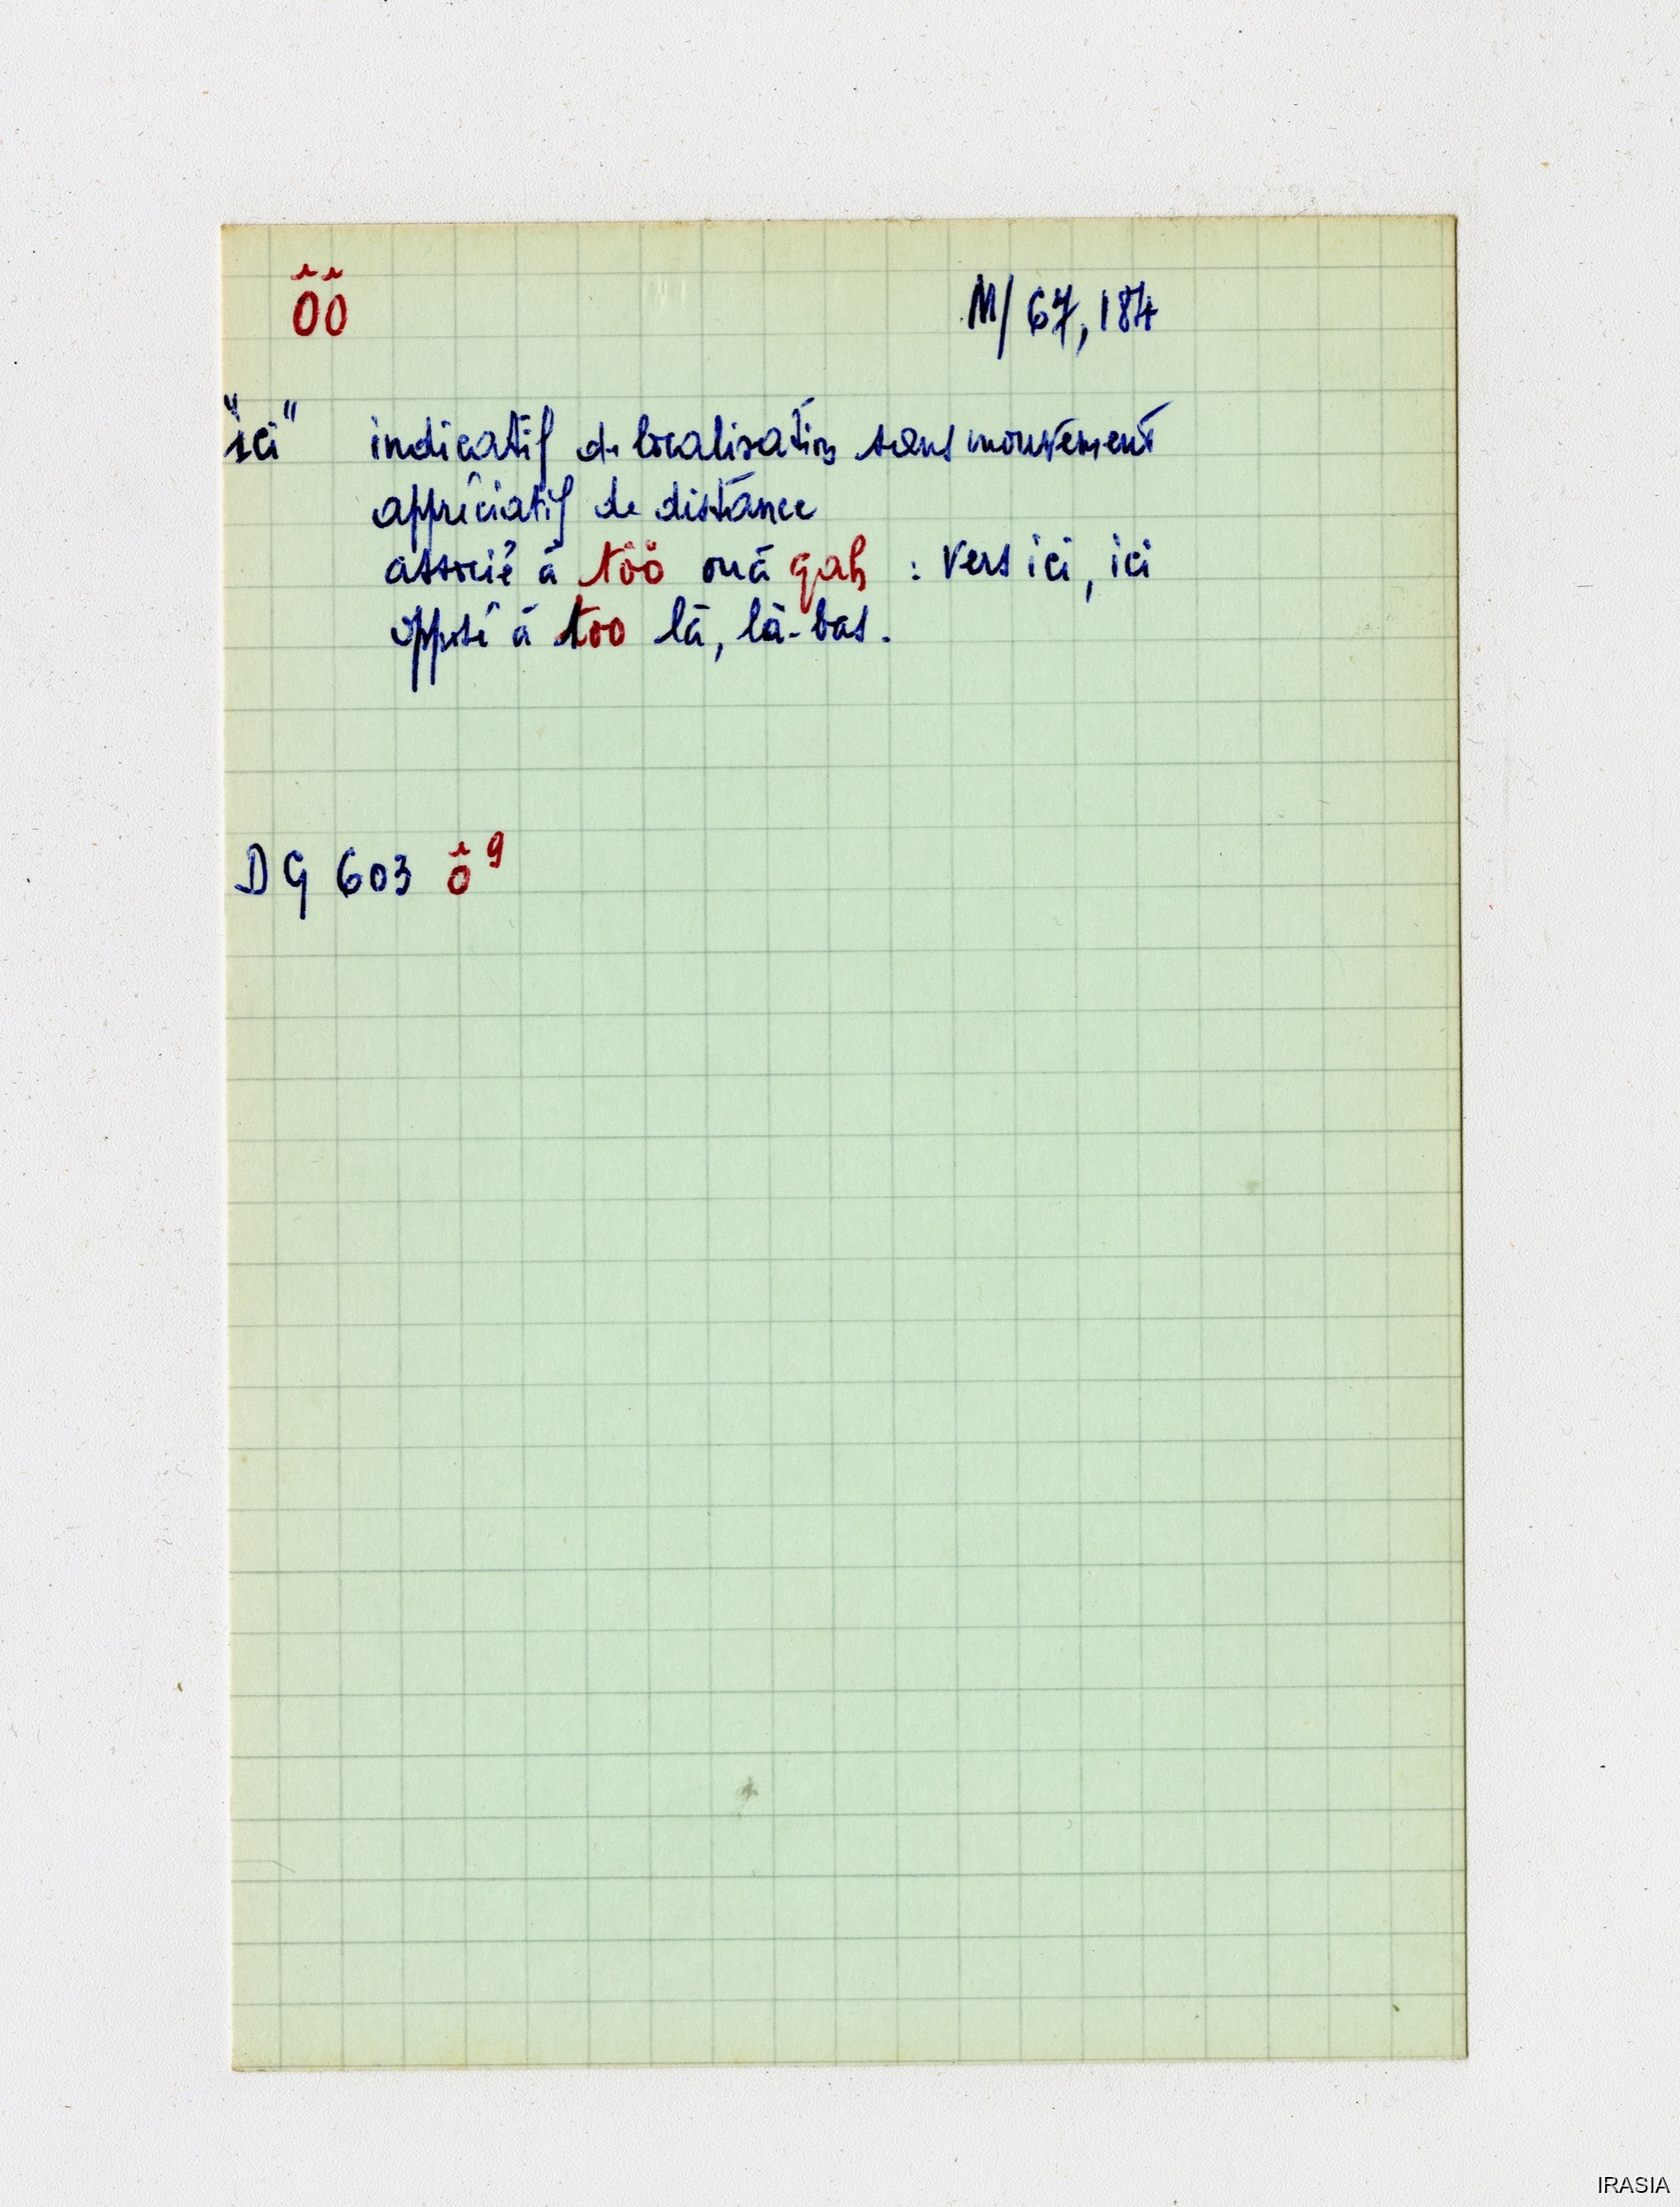 ôô M/67,184
"ici" indicatif de localisation sans mouvement
appréciatif de distance
associé à töö ou à qah : vers ici, ici
opposé à too là, là-bas.
DG 603 ô⁹
IRASIA